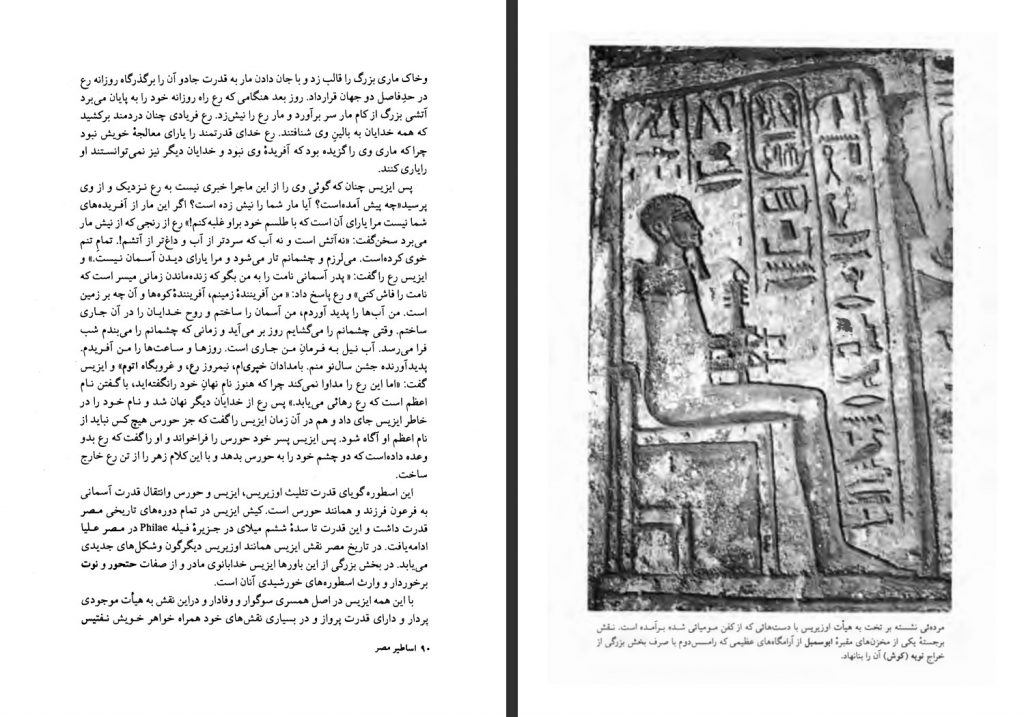 وخاک ماری بزرگ را قالب زد و با جان دادن مار به قدرت جادو آن را برگذرگاه روزانه رع
در حدِفاصل دو جهان قرارداد. روز بعد هنگامی که رع راه روزانه خود را به پایان می‌برد
آتشی بزرگ از کام مار سر برآورد و مار رع را نیش‌زد. رع فریادی چنان دردمند برکشید
که همه خدایان به بالینِ وی شتافتند. رع خدای قدرتمند را یارای معالجهٔ خویش نبود
چرا که ماری وی را گزیده بود که آفریدهٔ وی نبود و خدایان دیگر نیز نمی‌توانستند او
رایاری کنند.
پس ایزیس چنان که گوئی وی را از این ماجرا خبری نیست به رع نزدیک و از وی
پرسید«چه پیش آمده‌است؟ آیا مار شما را نیش زده است؟ اگر این مار از آفریده‌های
شما نیست مرا یارای آن است که با طلسم خود براو غلبه‌کنم!» رع از رنجی که از نیش مار
می‌برد سخن‌گفت: «نه‌آتش است و نه آب که سردتر از آب و داغ‌تر از آتشم!. تمامِ تنم
خوی کرده‌است. می‌لرزم و چشمانم تار می‌شود و مرا یارای دیدن آسمان نیست.» و
ایزیس رع راگفت: « پدر آسمانی نامت را به من بگو که زنده‌ماندن زمانی میسر است که
نامت را فاش‌کنی» و رع پاسخ داد: « من آفرینندهٔ زمینم، آفرینندهٔ کوه‌ها و آن چه بر زمین
است. من آب‌ها را پدید آوردم، من آسمان را ساختم و روح خدایان را در آن جاری
ساختم. وقتی چشمانم را می‌گشایم روز بر می‌آید و زمانی که چشمانم را می‌بندم شب
فرا می‌رسد. آب نیل به فرمانِ من جاری است. روزها و ساعت‌ها را من آفریدم.
پدیدآورنده جشن سال‌نو منم. بامدادان خپری‌ام، نیمروز رع، و غروبگاه اتوم» و ایزیس
گفت: «اما این رع را مداوا نمی‌کند چرا که هنوز نامِ نهانِ خود رانگفته‌اید، با گفتن نام
اعظم است که رع رهائی می‌یابد.» پس رع از خدایان دیگر نهان شد و نام خود را در
خاطر ایزیس جای داد و هم در آن زمان ایزیس راگفت که جز حورس هیچ کس نباید از
نام اعظم او آگاه شود. پس ایزیس پسر خود حورس را فراخواند و او را گفت که رع بدو
وعده داده‌است که دو چشم خود را به حورس بدهد و با این کلام زهر را از تن رع خارج
ساخت.
این اسطوره گویای قدرت تثلیث اوزیریس، ایزیس و حورس وانتقال قدرت آسمانی
به فرعون فرزند و همانند حورس است. کیش ایزیس در تمام دوره‌های تاریخی مصر
قدرت داشت و این قدرت تا سدهٔ ششم میلای در جزیرهٔ فیله Philae در مصر علیا
ادامه‌یافت. در تاریخ مصر نقش ایزیس همانند اوزیریس دیگرگون وشکل‌های جدیدی
می‌یابد. در بخش بزرگی از این باورها ایزیس خدابانوی مادر و از صفات حتحور و نوت
برخوردار و وارث اسطوره‌های خورشیدی آنان است.
با این همه ایزیس در اصل همسری سوگوار و وفادار و دراین نقش به هیأت موجودی
پردار و دارای قدرت پرواز و در بسیاری نقش‌های خود همراه خواهر خویش نفتیس
۹۰ اساطیر مصر
مرده‌ئی نشسته بر تخت به هیأت اوزیریس با دست‌هائی که از کفن مومیائی شده برآمده است. نقش
برجستهٔ یکی از مخزن‌های مقبرهٔ ابوسمبل از آرامگاه‌های عظیمی که رامسس‌دوم با صرف بخش بزرگی از
خراج نوبه (کوش) آن را بنانهاد.